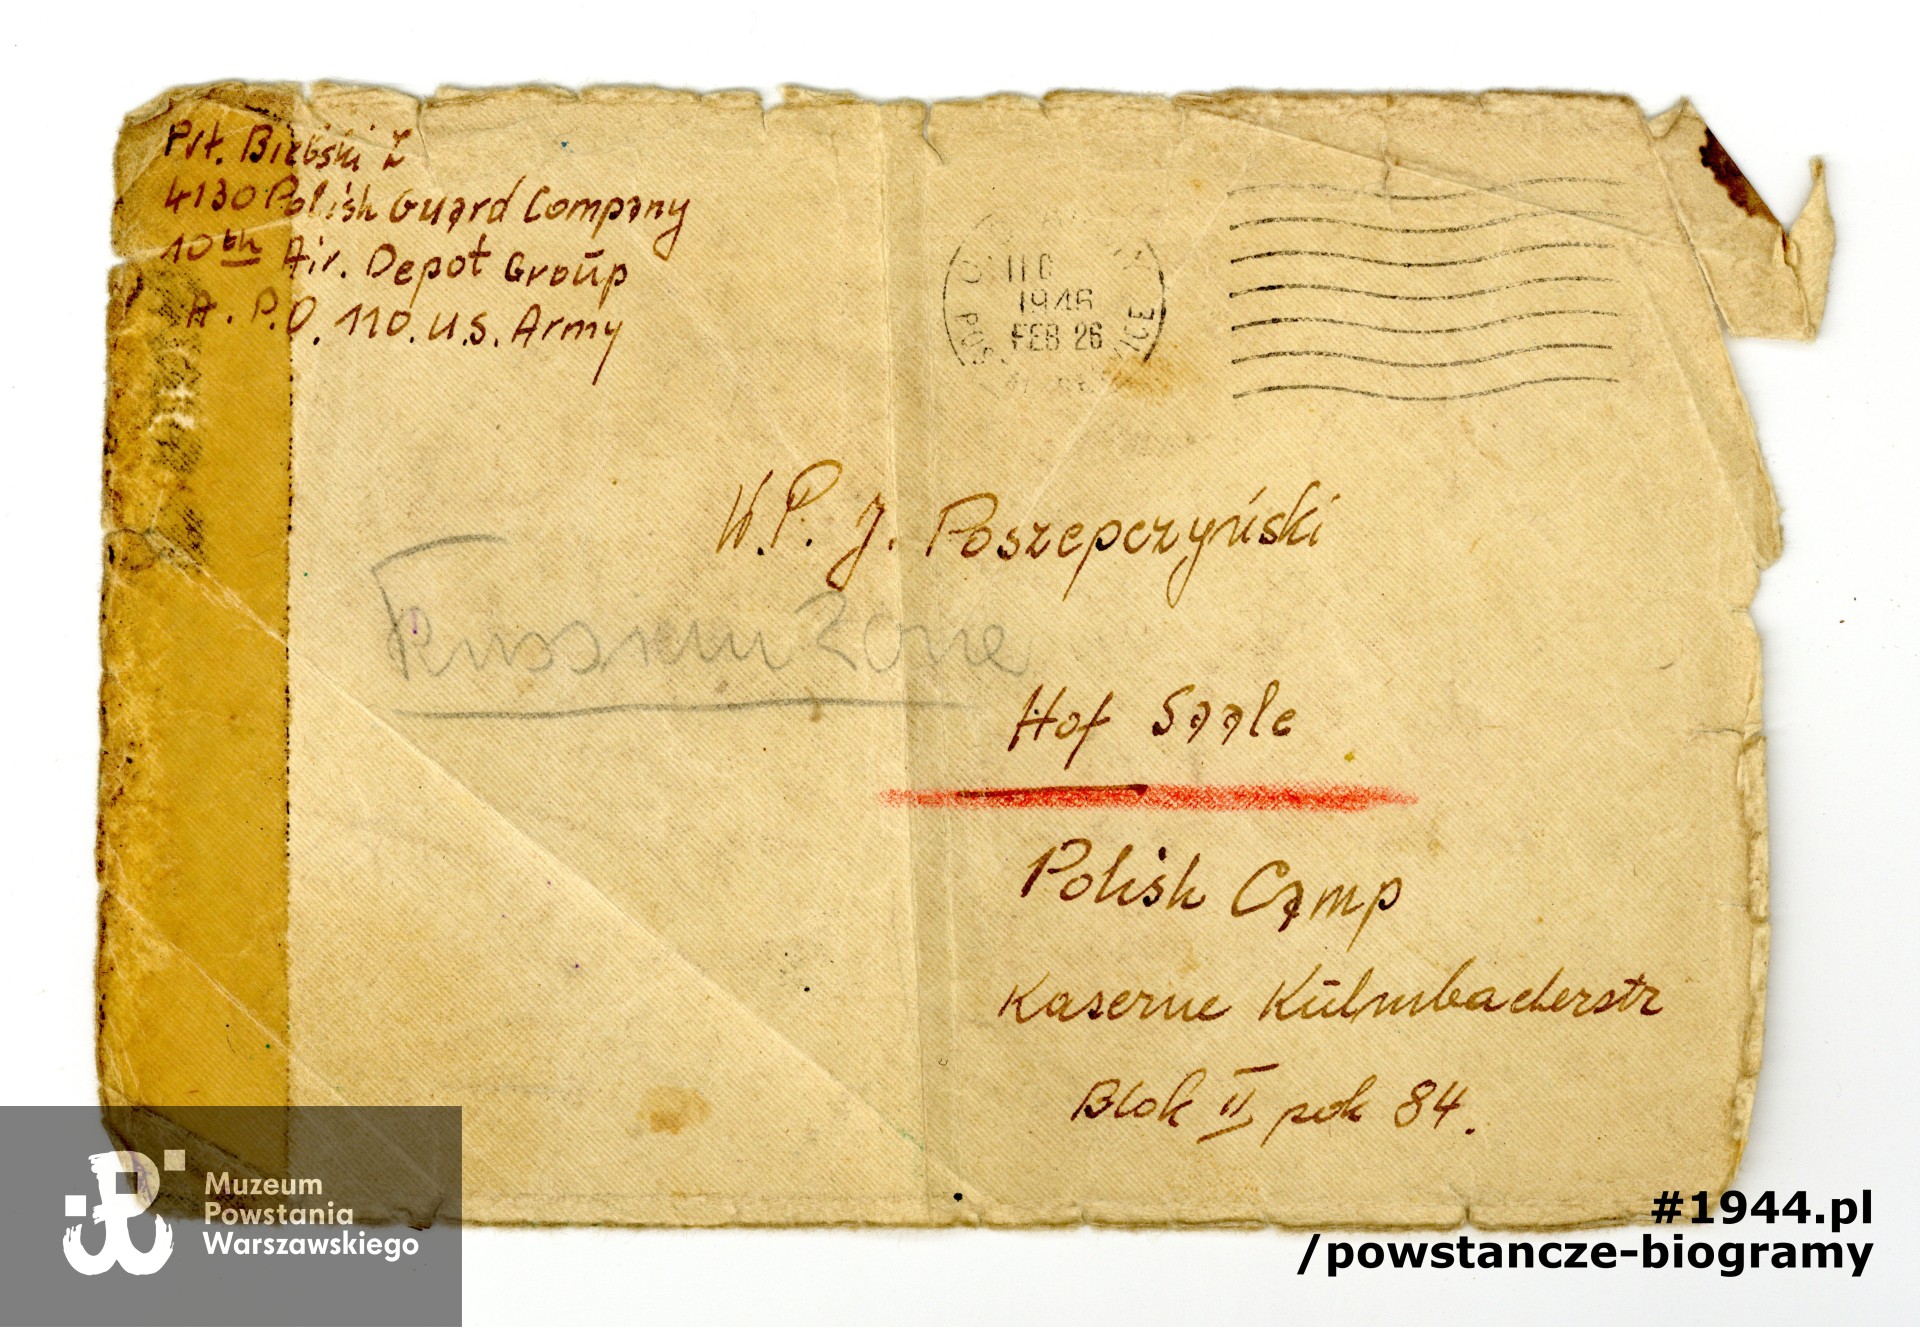 Prt. Bielski Z
4130 Polish Guard Company
10th Air. Depot Group
A. P.O. 110. U.S. Army
11 0
1946
FEB 26
W.P. J. Poszepczyński
Russien Zone
Hof Saale
Polish Camp
Kaserne Külmbacherstr
Blok II pok 84.
Muzeum
Powstania
Warszawskiego
#1944.pl
/powstancze-biogramy